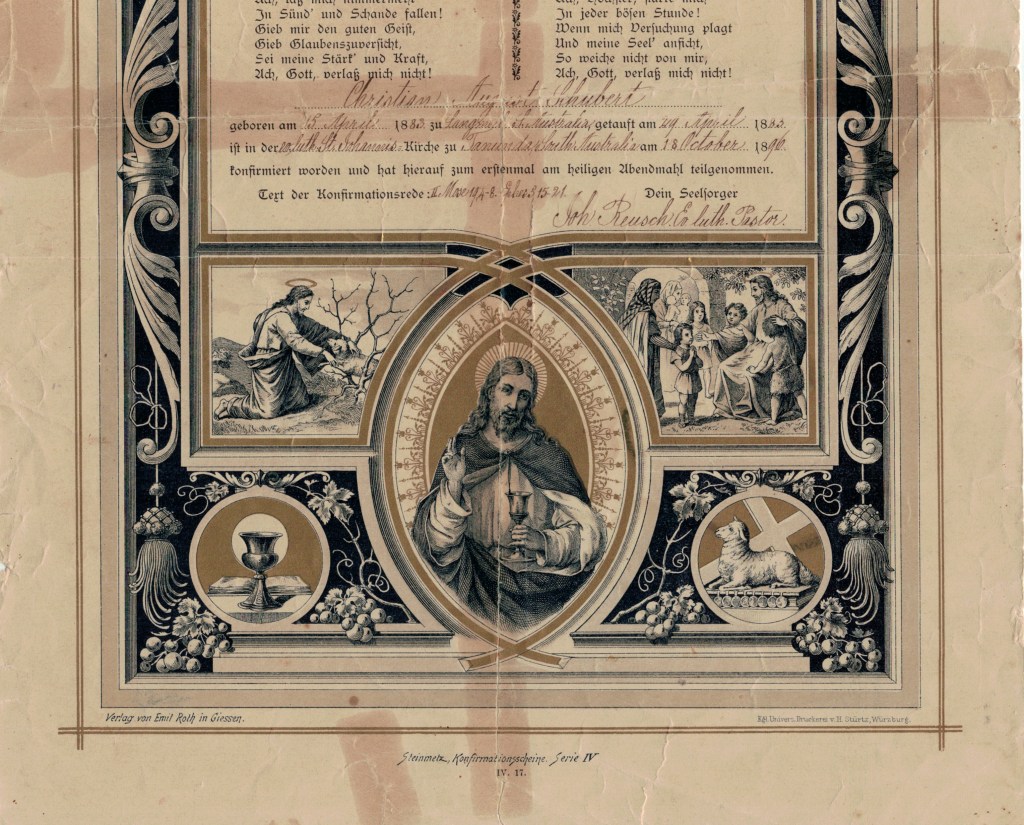 In Sünd' und Schande fallen!
Gieb mir den guten Geist,
Gieb Glaubenszuversicht,
Sei meine Stärk' und Kraft,
Ach, Gott, verlaß mich nicht!
In jeder bösen Stunde!
Wenn mich Versuchung plagt
Und meine Seel' anficht,
So weiche nicht von mir,
Ach, Gott, verlaß mich nicht!
Christian August Schubert
geboren am 15 April 1883. zu Australia, getauft am 29 April 1883.
ist in der luth. St. Johannis-Kirche zu Tanunda South Australia am 28 October 1896.
konfirmiert worden und hat hierauf zum erstenmal am heiligen Abendmahl teilgenommen.
Text der Konfirmationsrede: II. Mose 19,4-8.
Dein Seelsorger
Joh. Reusch. Ev. luth. Pastor.
Verlag von Emil Roth in Giessen.
Kgl. Univers. Druckerei v. H. Stürtz, Würzburg.
Steinmetz, Konfirmationsscheine. Serie IV
IV. 17.